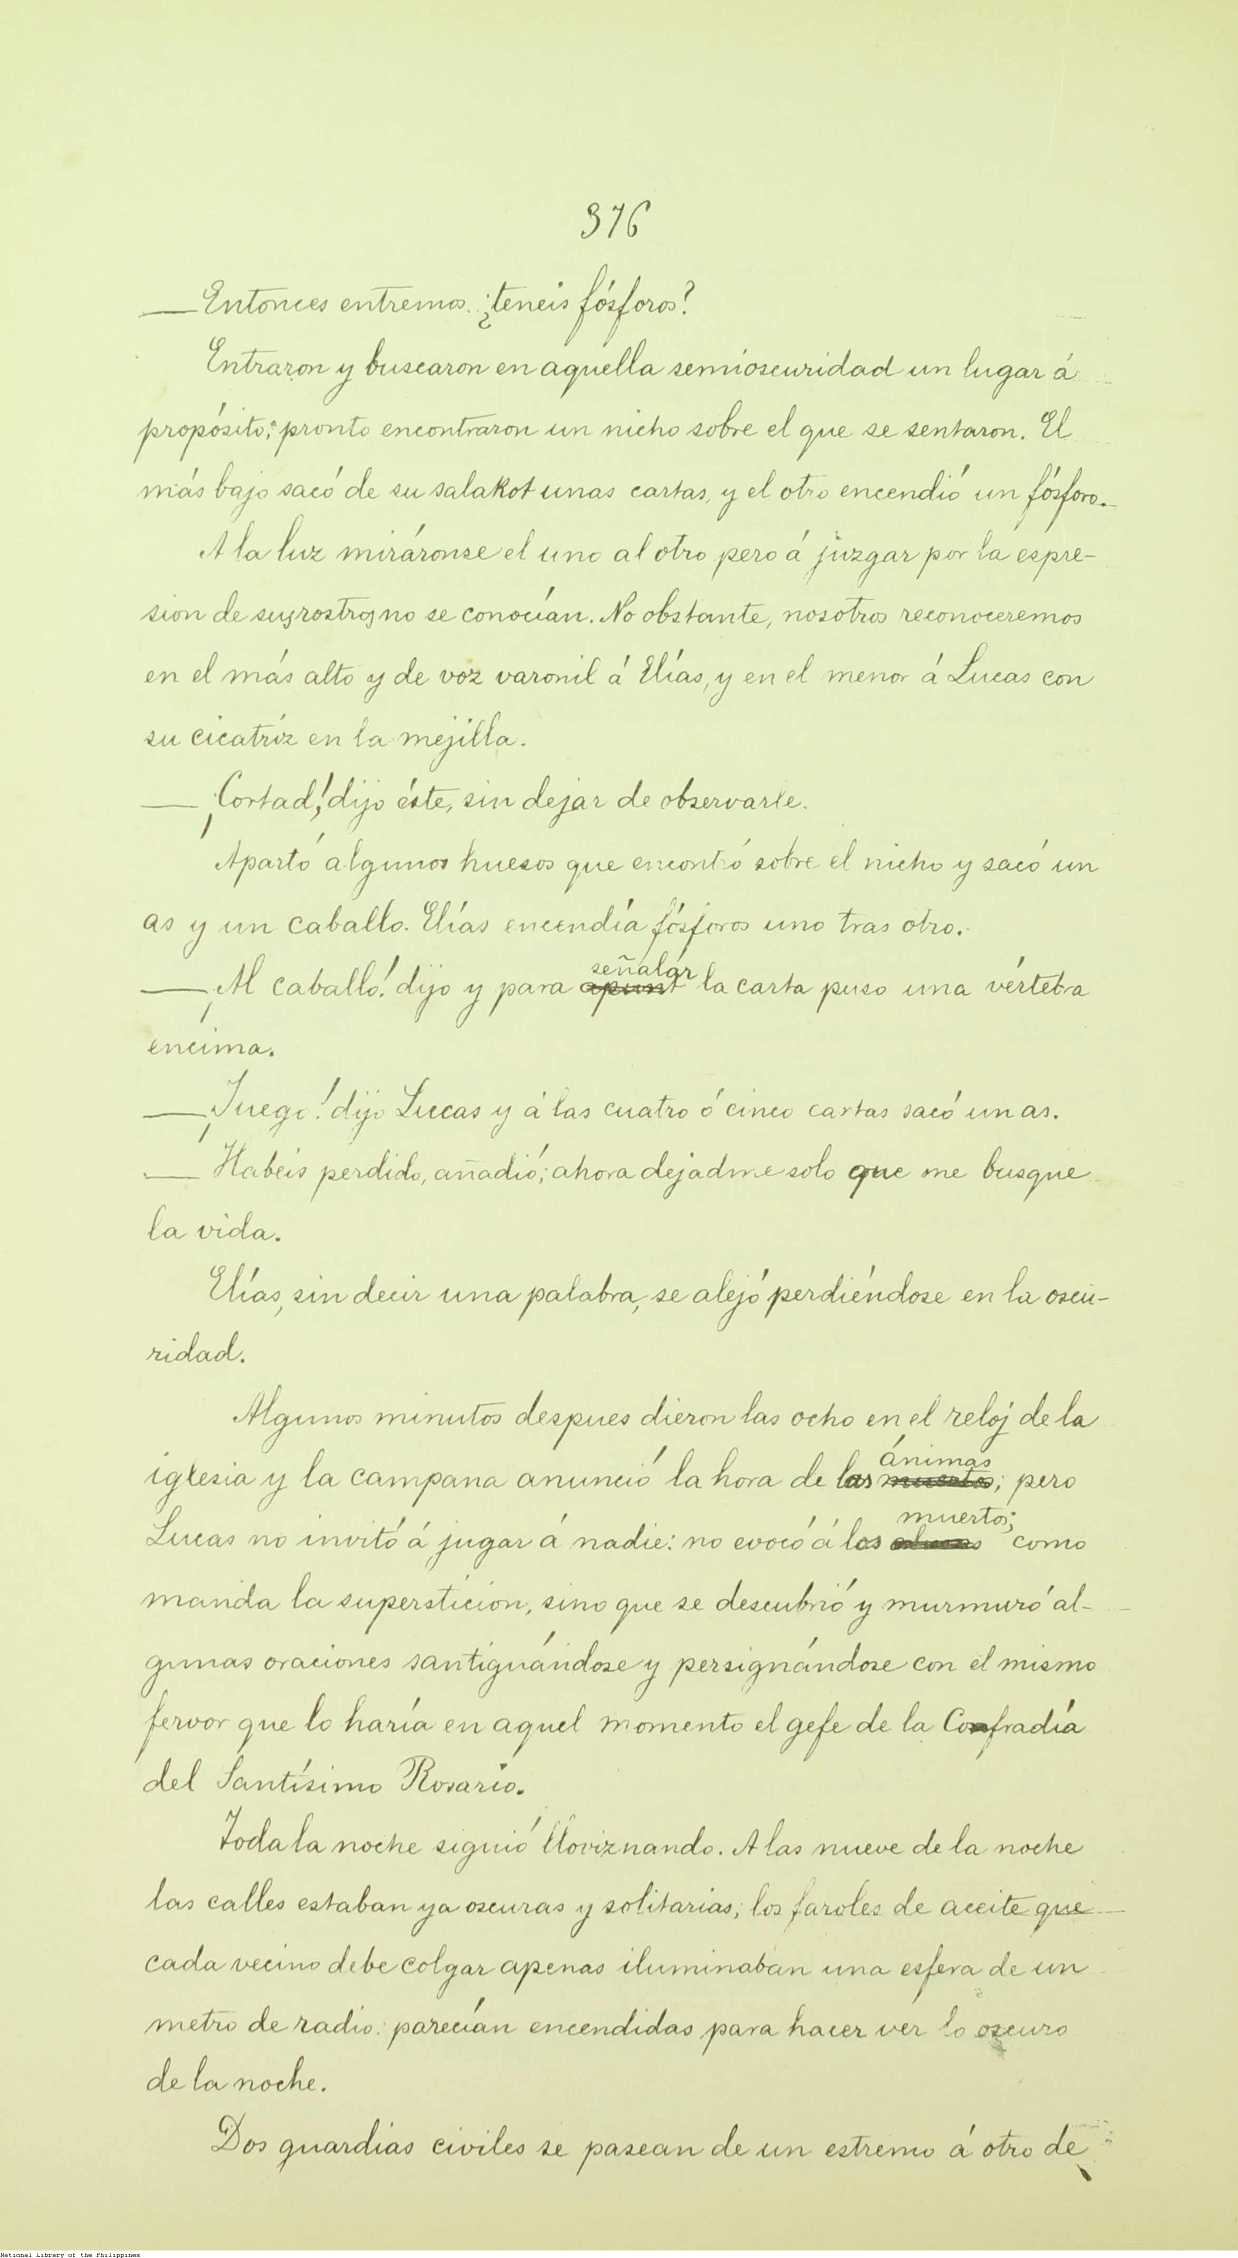 376
—Entonces entremos. ¿teneis fósforos?
Entraron y buscaron en aquella semioscuridad un lugar á
propósito; pronto encontraron un nicho sobre el que se sentaron. El
más bajo sacó de su salakot unas cartas, y el otro encendió un fósforo.
A la luz miráronse el uno al otro pero á juzgar por la espre-
sion de sus rostros no se conocían. No obstante, nosotros reconoceremos
en el más alto y de voz varonil á Elías, y en el menor á Lucas con
su cicatríz en la mejilla.
—¡Cortad! dijo éste, sin dejar de observarle.
Apartó algunos huesos que encontró sobre el nicho y sacó un
as y un caballo. Elías encendía fósforos uno tras otro.
señalar
—¡Al caballo! dijo y para apunt la carta puso una vértebra
encima.
—¡Juego! dijo Lucas y á las cuatro ó cinco cartas sacó un as.
— Habeis perdido, añadió; ahora dejadme solo que me busque
la vida.
Elías, sin decir una palabra, se alejó perdiéndose en la oscu-
ridad.
Algunos minutos despues dieron las ocho en el reloj de la
ánimas
iglesia y la campana anunció la hora de las muertos; pero
muertos;
Lucas no invitó á jugar á nadie: no evocó á los como
manda la supersticion, sino que se descubrió y murmuró al-
gunas oraciones santiguándose y persignándose con el mismo
fervor que lo haría en aquel momento el gefe de la Cofradía
del Santísimo Rosario.
Toda la noche siguió lloviznando. A las nueve de la noche
las calles estaban ya oscuras y solitarias; los faroles de aceite que
cada vecino debe colgar apenas iluminaban una esfera de un
metro de radio: parecían encendidas para hacer ver lo oscuro
de la noche.
Dos guardias civiles se pasean de un estremo á otro de
National Library of the Philippines